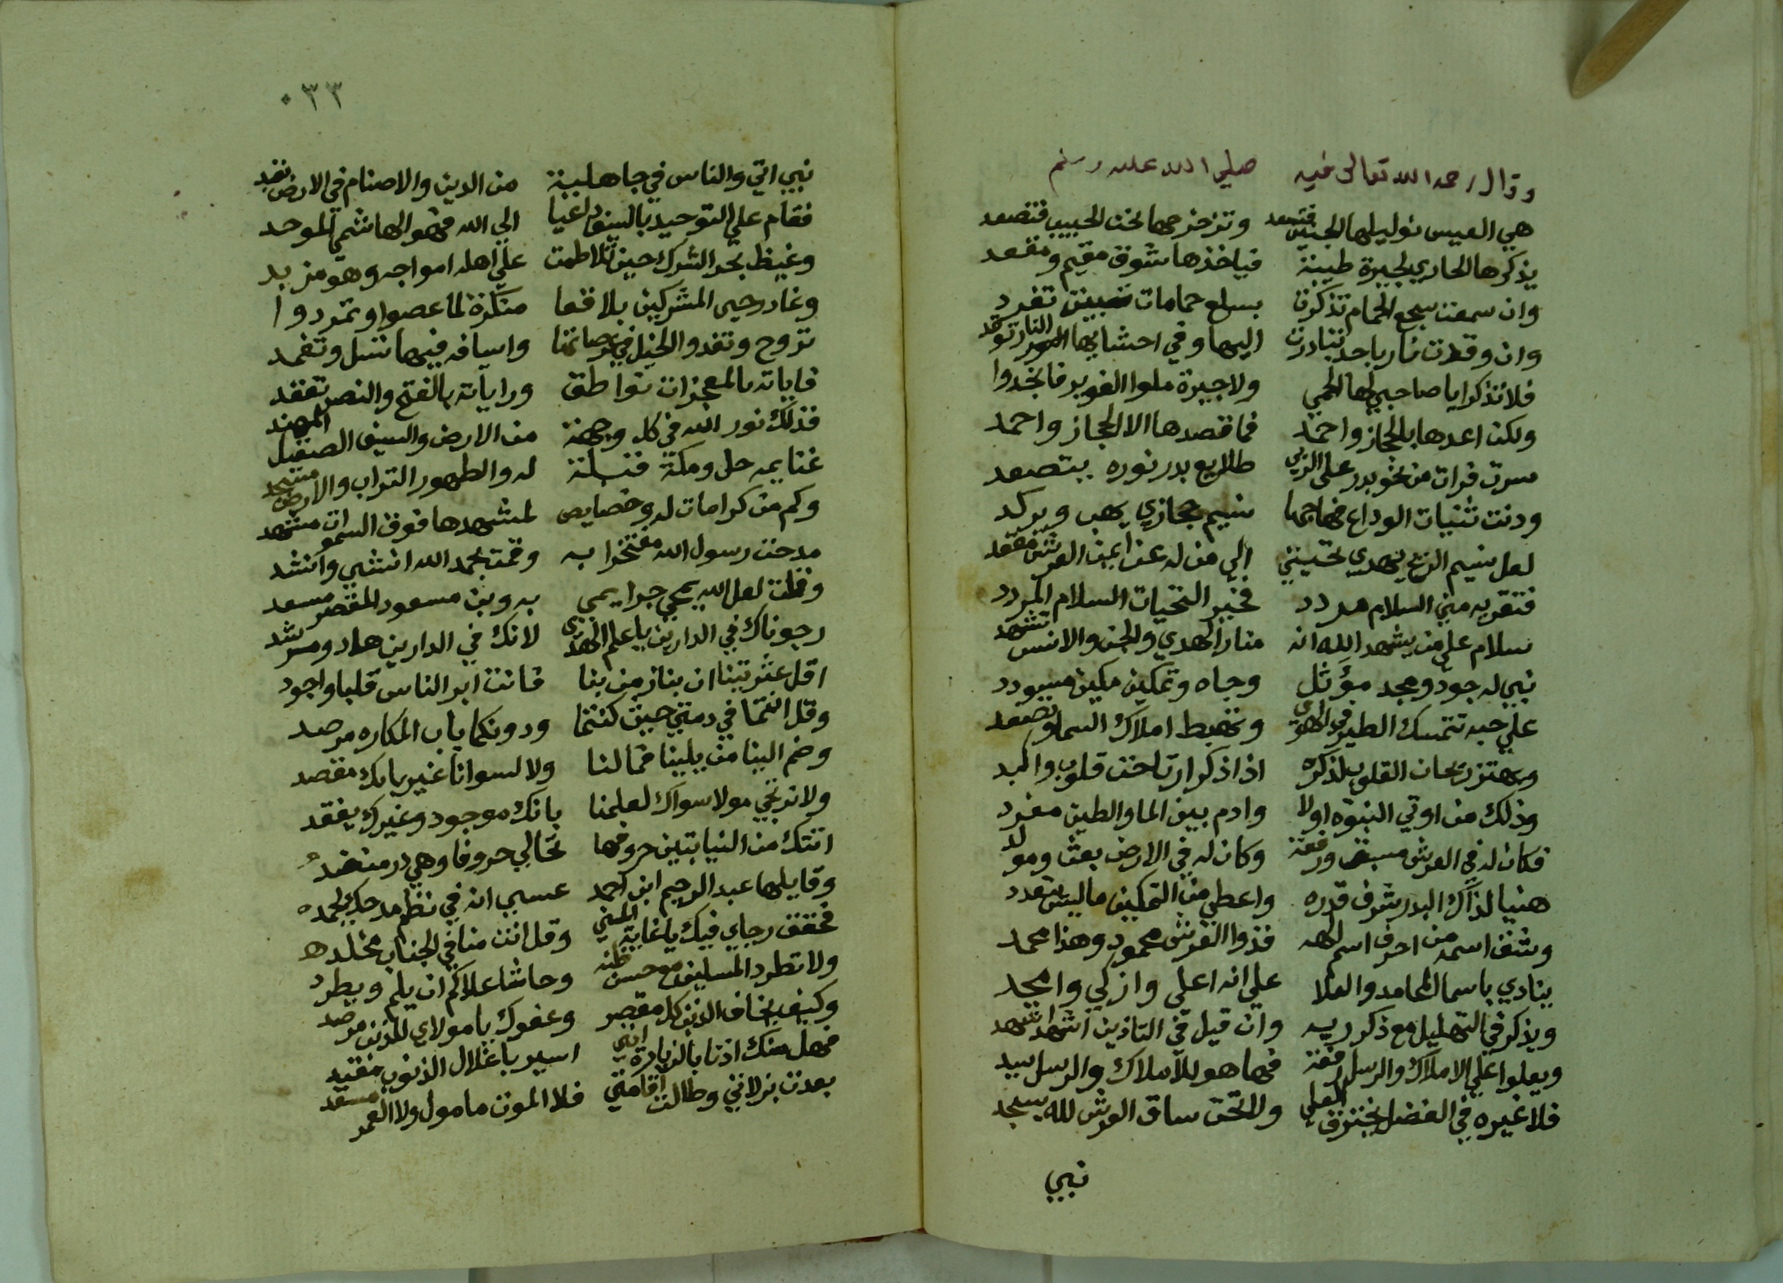 وقال رحمه الله تعالى فيه صلى الله عليه وسلم
هي العيس نوليلها الحبيب فتسعد وتزخرجها نحن الحبيب فتصعد
يذكرها الحادي لجيرة طيبة فياخذها شوق مقيم ومقعد
وان سمعت سجع الحمام تذكرت بسلع حمامات تغرد
وان وقدت نار باحد تبادرت اليها وفي احشايها النار توقد
فلا تذكرا يا صاحبي لها الحمي ولا جيرة ملوا الغوير فانجدوا
ولكن اعدها بالحجاز واحمد فما قصدها الا الحجاز واحمد
سرت فرات من نحو بدر على الربي طلايع بدر نوره يتصعد
ودنت ثنيات الوداع فهاجها نسيم حجازي يهب ويركد
لعل نسيم الريح يهدي تحيتي الي من له عن ايمن العرش مقعد
فتقريه مني السلام مردد فخير التحيات السلام المردد
سلام علي من يشهد الله انه منار الهدي والجن والانس تشهد
نبي له جود ومجد مؤثل وجاه وتمكين مكين وسودد
علي حبه تتمسك الطير في الهوي وتهبط املاك السما وتصعد
ويهتز ريحان القلوب لذكره اذا ذكر ارتاحت قلوب واكبد
وذلك من اوتي النبوه اولا وادم بين الما والطين مفرد
فكان له في العرش مسبق ورفعة وكان له في الارض بعث ومولد
هنيا لذاك البدر شرف قدره واعطي من التمكين ما ليس ينفدد
وشق اسمه من احرف اسم الهه فذوا العرش محمود وهذا محمد
ينادي باسما المحامد والعلا علي انه اعلي وازكي وامجد
ويذكر في التهليل مع ذكر ربه وان قيل في التاذين اشهد اشهد
ويعلوا علي الاملاك والرسل رفعة فها هو للاملاك والرسل سيد
فلا غيره في الفضل يخترق العلي ولا تحت ساق العرش لله يسجد
نبي
٠٣٣
نبي اتي والناس في جاهلية من الدين والاصنام في الارض تعبد
فقام علي التوحيد بالسيف داعيا الي الله فهو الهاشمي الموحد
وغيظ بحر الشرك حين تلاطمت علي اهله امواجه وهو مزبد
وغادر حي المشركين بلاقعا منكرة لما عصوا وتمردوا
تروح وتغدوا الخيل في عرصاتها واسيافه فيها تسل وتغمد
فاياته بالمعجزات نواطق وراياته بالفتح والنصر تعقد
فذلك نور الله في كل وجهة من الارض والسيف الصقيل المهند
غنايمه حل ومكة قبلة له والطهور التراب والارض مسجد
وكم من كرامات له وخصايص لمشهدها فوق السموات مشهد
مدحت رسول الله مفتخرا به وقمت بحمد الله انشي وانشد
وقلت لعل الله يمحي جرايمي به وبن مسعود المقصر مسعد
رجوناك في الدارين يا علم الهدي لانك في الدارين هاد ومرشد
اقل عثرتينا ان بنا زمن بنا فانت ابر الناس قلبا واجود
وقل انتما في ذمتي حيث كنتما ودونكما باب المكاره مرصد
وضم الينا من يلينا فما لنا ولا لسوانا غير بابك مقصد
ولا نرتجي مولا سواك لعلمنا بانك موجود وغيرك يفقد
اتتك من النيابتين حروفها تخالي حروفا وهي در منضد
وقايلها عبد الرحيم ابن احمد عسي انه في نظم مدحك يحمد
فحقق رجاي فيك يا غاية المني وقل انت منا في الجنان مخلده
ولا تطرد المسلين مع حسن ظنه وحاشا علاكم ان يلم ويطرد
وكيف يخاف الذنب كل مقصر وعفوك يا مولاي للذنب مرصد
فهل منك اذنا بالزيارة انني اسير باغلال الذنوب مقيد
بعدت بزلاتي وطالت اقامتي فلا الموت مامول ولا العمر مسعد